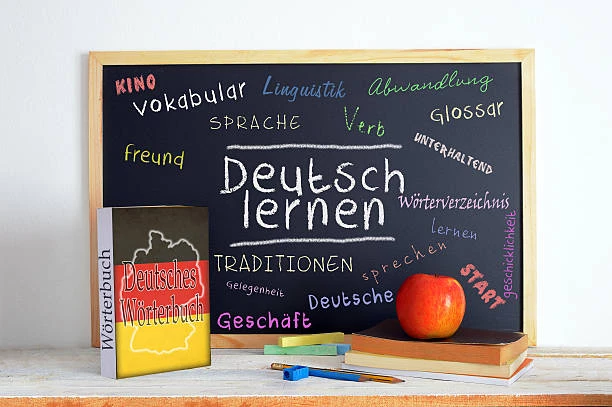 KINO
Vokabular
Linguistik
Abwandlung
Glossar
SPRACHE
Verb
UNTERHALTEND
freund
Deutsch
lernen
Wörterverzeichnis
lernen
geschicklichkeit
sprechen
TRADITIONEN
Gelegenheit
START
Deutsche
Geschäft
Wörterbuch
Deutsches
Wörterbuch